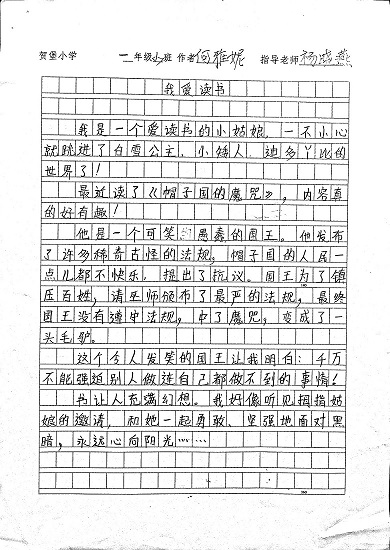 贺堡小学 二年级 班 作者 何雅妮 指导老师 杨晓燕
我爱读书
我是一个爱读书的小姑娘，一不小心
就跳进了白雪公主、小矮人、迪多丫比的
世界了！
最近读了《帽子国的魔咒》，内容真
的好有趣！
他是一个可笑 愚蠢的国王。他发布
了许多稀奇古怪的法规，帽子国的人民一
点儿都不快乐，提出了抗议。国王为了镇
压百姓，请巫师颁布了最严的法规，最终
国王没有遵守法规，中了魔咒，变成了一
头毛驴。
这个令人发笑的国王让我明白：千万
不能强迫别人做连自己都做不到的事情！
书让人充满幻想。我好像听见拇指姑
娘的邀请，和她一起勇敢、坚强地面对黑
暗，永远心向阳光……